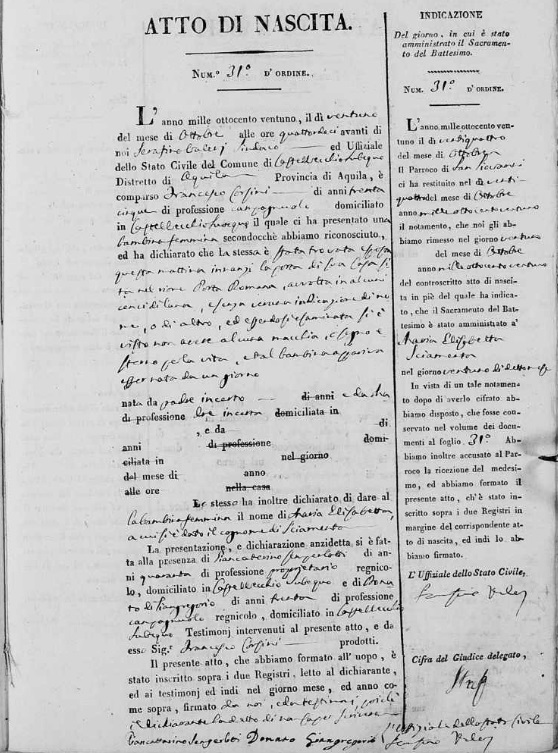 ATTO DI NASCITA.
NUM.º 31º D'ORDINE.
L'anno mille ottocento ventuno, il dì ventuno
del mese di Ottobre alle ore quattordeci avanti di
noi Serafino Sindaco ed Uffiziale
dello Stato Civile del Comune di Castelvecchio Subequo
Distretto di Aquila Provincia di Aquila, è
comparso Francesco Corsini di anni trenta
cinque di professione campagnuolo domiciliato
in Castelvecchio Subequo il quale ci ha presentato una
bambina femmina secondocchè abbiamo riconosciuto,
ed ha dichiarato che La stessa è stata trovata esposta
questa mattina innanzi la porta di sua Casa si
ta nel rione Porta Romana, avvolta in alcuni
cenci di lana, e senza veruna indicazione di no
me, o di altro, ed essendosi esaminata si è
visto non avere alcuna macchia, e segno e
sterno per la vita, e dal bambina appariva
essere nata da un giorno
nata da padre incerto di anni e da ma
di professione dre incerta domiciliata in
, e da di
anni di professione domi-
ciliata in nel giorno
del mese di anno
alle ore nella casa
Lo stesso ha inoltre dichiarato di dare al
la bambina femmina il nome di Maria Elisabetta,
a cui si è dato il cognome di Sciamento
La presentazione, e dichiarazione anzidetta si è fat-
ta alla presenza di Biancatesino Sangerloti di an-
ni quaranta di professione proprietario regnico-
lo, domiciliato in Castelvecchio Subequo e di Dona
to Giangregorio di anni trenta di professione
campagnuolo regnicolo, domiciliato in Castelvecchio
Subequo Testimonj intervenuti al presente atto, e da
esso Sig.r Francesco Corsini prodotti.
Il presente atto, che abbiamo formato all'uopo, è
stato inscritto sopra i due Registri, letto al dichiarante,
ed ai testimonj ed indi nel giorno mese, ed anno co-
me sopra, firmato da noi, e da testimonj, poichè
il dichiarante ha detto di non saper scrivere
Donato Giangregorio
L'uffiziale dello stato Civile
INDICAZIONE
Del giorno, in cui è stato
amministrato il Sacramen-
to del Battesimo.
NUM. 31º D'ORDINE.
L'anno mille ottocento ven-
tuno il dì ventiquattro
del mese di Ottobre
Il Parroco di San Giovanni
ci ha restituito nel dì venti-
quattro del mese di Ottobre
anno mille ottocento ventuno
il notamento, che noi gli ab-
biamo rimesso nel giorno ventuno
del mese di Ottobre
anno mille ottocento ventuno
del controscritto atto di nasci-
ta in piè del quale ha indica-
to, che il Sacramento del Bat-
tesimo è stato amministrato a
Maria Elisabetta
Sciamento
nel giorno ventuno di detto mese
In vista di un tale notamen-
to dopo di averlo cifrato ab-
biamo disposto, che fosse con-
servato nel volume dei docu-
menti al foglio 31º Ab-
biamo inoltre accusato al Par-
roco la ricezione del medesi-
mo, ed abbiamo formato il
presente atto, ch'è stato in-
scritto sopra i due Registri in
margine del corrispondente at-
to di nascita, ed indi lo ab-
biamo firmato.
L'Uffiziale dello Stato Civile,
Cifra del Giudice delegato,